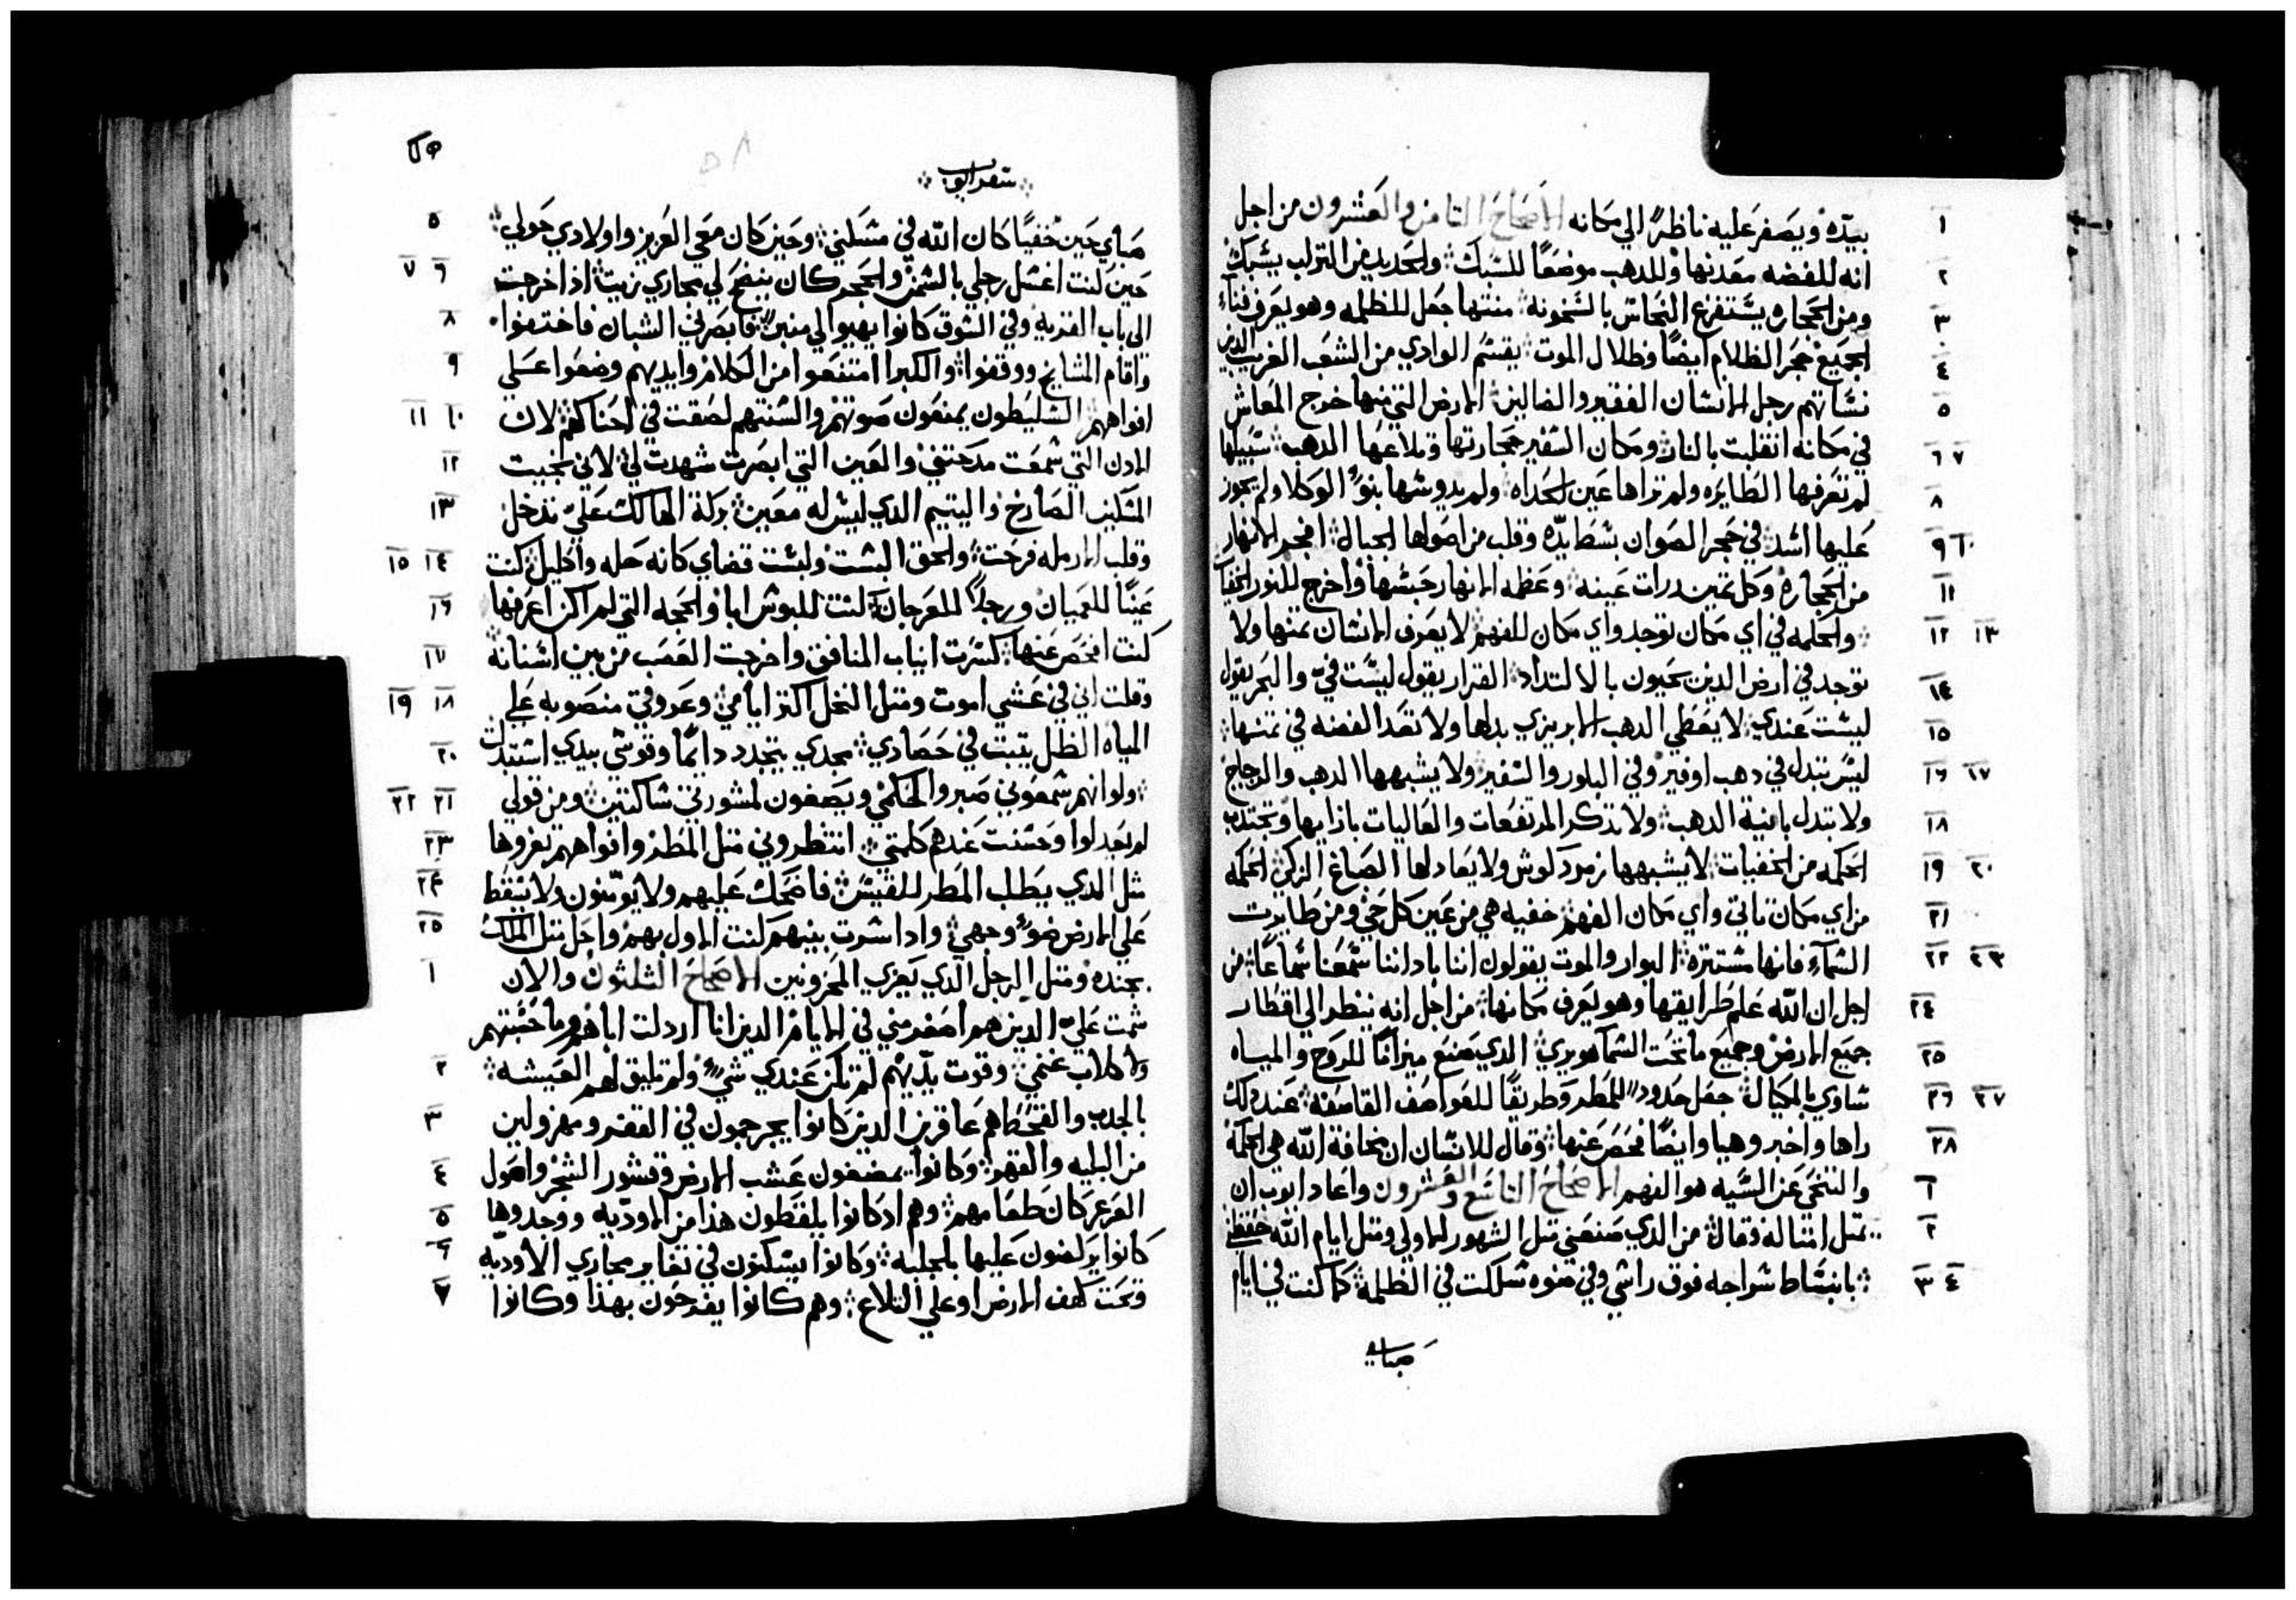 بيده ويصفر عليه ناظرًا الي مكانه الاصحاح الثامن والعشرون من اجل
انه للفضه معدنها وللدهب موضعًا للسبك والحديد من التراب يسبك
ومن الحجاره يستفرغ النحاس بالسخونه منتها جعل للظلمه وهو يعرف فناء
لجميع حجر الظلام ايضًا وظلال الموت يقسم الوادي من الشعب الغريب الدين
نساتهم رجل الانسان الفقير والضالين الارض التي منها خرج المعاش
في مكانه انقلبت بالنار ومكان السفير حجارتها وتلاعها الدهب سبيلها
لم تعرفها الطايره ولم تراها عين الحداه ولم يدوسها بنو الوكلا ولم يجوز
عليها اسد في حجر الصوان بسط يده وقلب من اصولها الجبال افجر الانهار
من الحجاره وكل تمين رات عينه وعظمه الانهار حبسها واخرج للنور الخفيا
والحكمه في اي مكان توجد واي مكان للفهم لا يعرف الانسان تمنها ولا
توجد في ارض الدين يحيون بالالتداد القرار يقول ليست في والبحر يقول
ليست عندي لا يعطي الدهب الابريزي بدلها ولا تعد الفضه في تمنها
ليس تبدل في دهب اوفير وفي البلور والسفير ولا يشبهها الدهب والزجاج
ولا تبدل بانية الدهب ولا تدكر المرتفعات والعاليات بازايها وتجتدب
الحكمه من الخفيات لا يشبهها زمرد كوش ولا يعادلها الصباغ الزكي الحكمه
من اي مكان تاتي واي مكان الفهم خفيه هي من عين كل حي ومن طايرت
السماء فانها مستتره البوار والموت يقولون اننا باداننا سمعنا سماعًا من
اجل ان الله علم طرايقها وهو يعرف مكانها من اجل انه ينظر الي اقطار
جميع الارض وجميع ما تحت السما هو يري الدي صنع ميزانًا للروح والمياه
ساوي بالمكيال جعل حدود للمطر وطريقًا للعواصف القاصفه عند دلك
راها واخبر وهيا وايضًا فحص عنها وقال للانسان ان مخافة الله هي الحكمة
والتنحي عن السيه هو الفهم الاصحاح التاسع والعشرون واعاد ايوب ان
يمتل امتاله وقال من الدي صنعني متل الشهور الاولي ومتل ايام الله حفظني
بانبساط سراجه فوق راسي وفي ضوه سلكت في الظلمه كما كنت في ايام
صباي
سفر ايوب
صباي حين خفيًا كان الله في مسكني وحين كان معي العزيز واولادي حولي
حين كنت اغسل رجلي بالسمن والحجر كان ينضح لي مجاري زيت ادا خرجت
الي باب القريه وفي السوق كانوا يهيوا لي منبر فابصرني الشبان فاختفوا
واقام المشايخ ووقفوا والكبرا امتنعوا من الكلام وايديهم وضعوا علي
افواههم السليطون يمنعون صوتهم والسنتهم لصقت في احناكهم لان
الادن التي سمعت مدحتني والعين التي ابصرت شهدت لي لاني نجيت
المسكين الصارخ واليتيم الدي ليس له معين بركة الهالك علي تدخل
وقلب الارمله فرحت والحق البست ولبست قضاي كانه حله واكليل كنت
عينًا للعميان ورجلًا للعرجان كنت للبوس ابا والحجه التي لم اكن اعرفها
كنت افحص عنها كسرت انياب المنافق واخرجت الغصب من بين اسنانه
وقلت اني في عشي اموت ومتل النخل اكتر ايامي وعروقي منصوبه علي
المياه الظل يتبت في حصادي مجدي يتجدد دايمًا وقوسي بيدي استبدلت
ولوانهم سمعوني صبروا لحكمي ويصغون لمشورتي ساكتين ومن قولي
لم يعدلوا وحسنت عندهم كلمتي انتظروني متل المطر وافواههم يغروها
متل الدي يطلب المطر للقيس فاضحك عليهم ولا يومنون ولا يسقط
علي الارض ضو وجهي وادا سرت بينهم كنت الاول بهم واحل متل الملك
بجنده ومتل الرجل الدي يعزي المحزونين الاصحاح الثلثون والان
شمت علي الدين هم اصغر مني في الايام الدين انا اردلت اباهم وما حسبتهم
ولا كلاب غنمي وقوت يديهم لم تكن عندي شي ولم تليق لهم العيشه
بالجدب والقحط هم عاقرين الدين كانوا يجرجمون في القفر ومهزولين
من البليه والقهر وكانوا يمضغون عشب الارض وقشور الشجر واصول
العرعر كان طعامهم وهم اد كانوا يلقطون هذا من الاوديه ووجدوها
كانوا يركضون عليها بالجلبه وكانوا يسكنون في تقاير مجاري الاوديه
وتحت كهف الارض او علي التلاع وهم كانوا يفرحون بهذا وكانوا